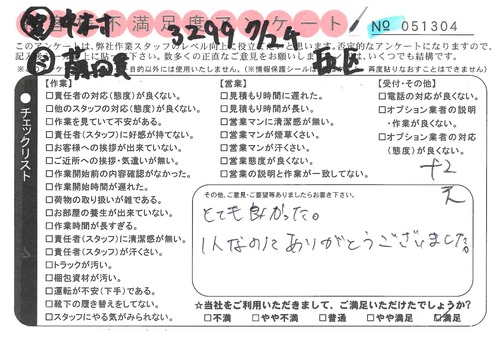 不満足度アンケート
No 051304
営 中村 3299 7/24
このアンケートは、弊社作業スタッフのレベル向上に役立て
否定的なアンケートになりますので、
数多くの正直なご意見をお願い
いくつでも結構です。
目的以外には使用いたしません。(※情報保護シール
再度貼りなおすことはできません)
チェックリスト
【作業】
□責任者の対応(態度)が良くない。
□他のスタッフの対応(態度)が良くない。
□作業を見ていて不安がある。
□責任者(スタッフ)に好感が持てない。
□お客様への挨拶が出来ていない。
□ご近所への挨拶・気遣いが無い。
□作業開始前の内容確認がなかった。
□作業開始時間が遅れた。
□荷物の取り扱いが雑である。
□お部屋の養生が出来ていない。
□作業時間が長すぎる。
□責任者(スタッフ)に清潔感が無い。
□責任者(スタッフ)が汗くさい。
□トラックが汚い。
□梱包資材が汚い。
□運転が不安(下手)である。
□靴下の履き替えをしてない。
□スタッフにやる気がみられない。
【営業】
□見積もり時間に遅れた。
□見積もり時間が長い。
□営業マンに清潔感が無い。
□営業マンが煙草くさい。
□営業マンが汗くさい。
□営業態度が良くない。
□営業の説明と作業が一致してない。
【受付・その他】
□電話の対応が良くない。
□オプション業者の説明
・作業が良くない。
□オプション業者の対応
(態度)が良くない。
+2
その他、ご意見・ご要望等ありましたらお書き下さい。
とても良かった。
1人なのにありがとうございました。
☆当社をご利用いただきまして、ご満足いただけたでしょうか?
□不満 □やや不満 □普通 □やや満足 ☑満足